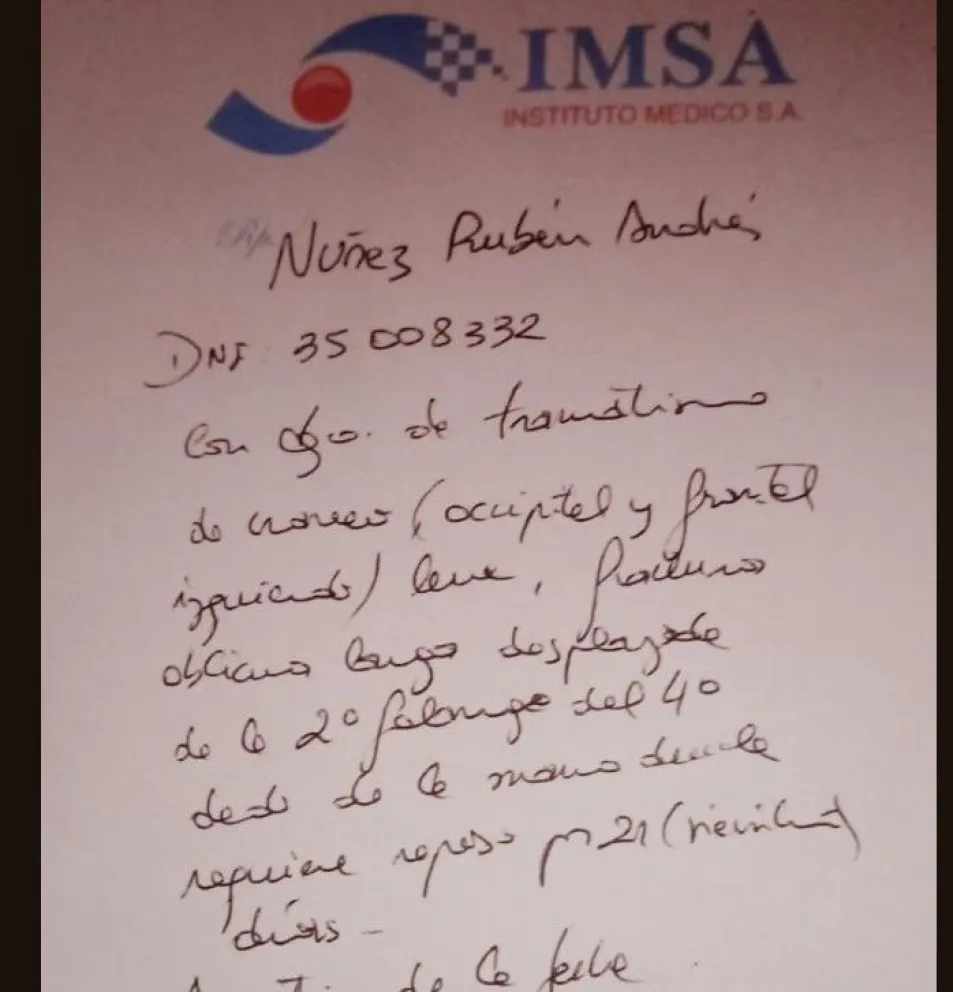 IMSA
INSTITUTO MEDICO S.A.
Rp
Nuñez Rubén Andrés
DNI: 35 008332
Con dgo. de traumatismo
de craneo (occipital y frontal
izquierdo) leve, fractura
oblicua larga desplazada
de la 2º falange del 4º
dedo de la mano derecha
requiere reposo por 21 (veintiun)
días -
A partir de la fecha